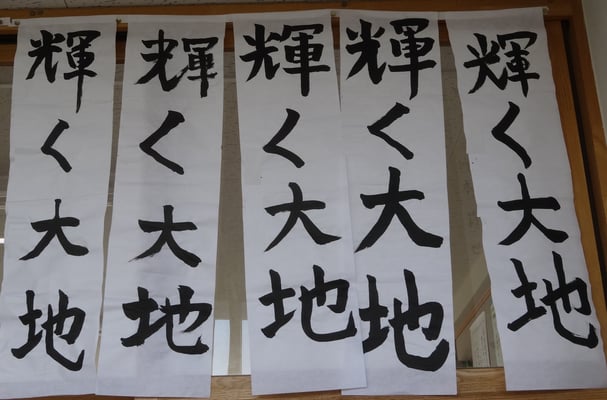 輝く大地
輝く大地
輝く大地
輝く大地
輝く大地